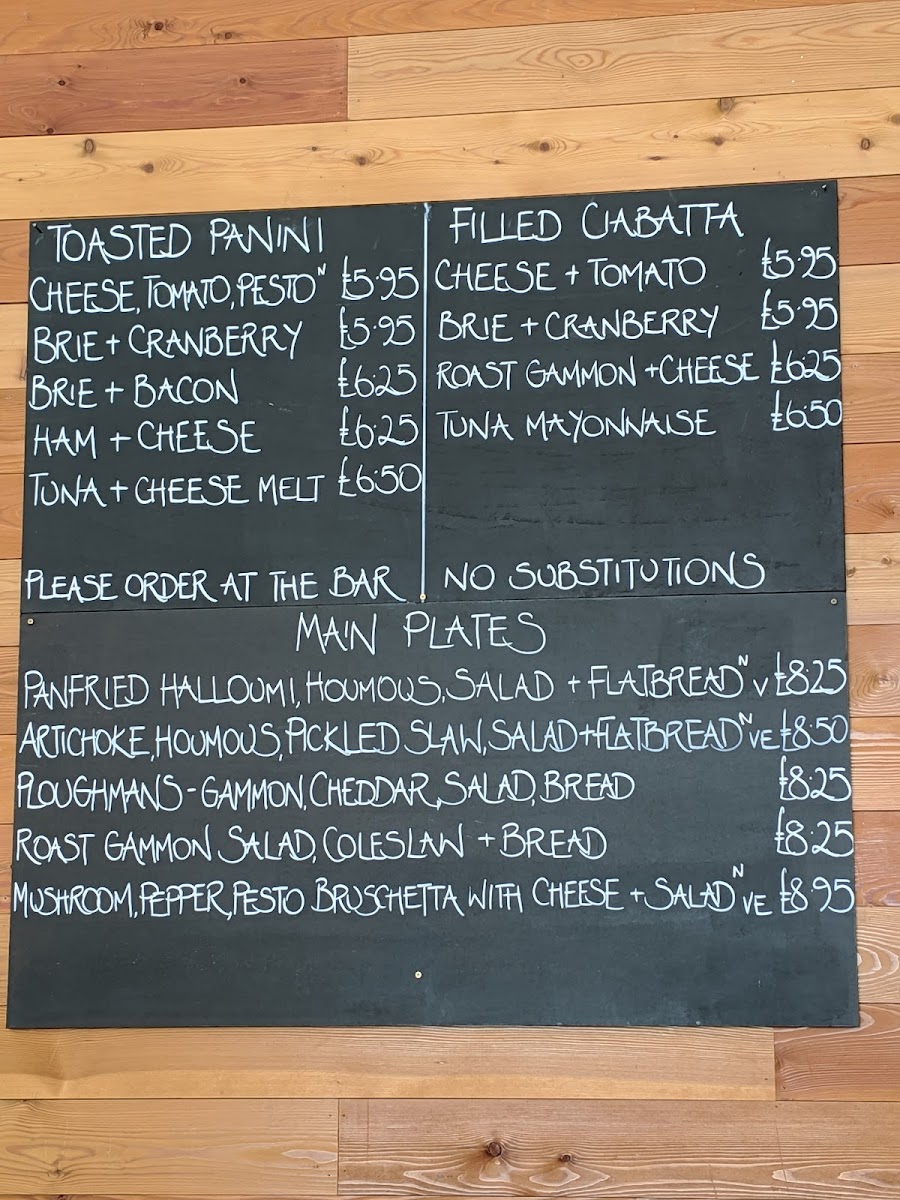 TOASTED PANINI
CHEESE, TOMATO, PESTO N £5.95
BRIE + CRANBERRY £5.95
BRIE + BACON £6.25
HAM + CHEESE £6.25
TUNA + CHEESE MELT £6.50
PLEASE ORDER AT THE BAR
FILLED CIABATTA
CHEESE + TOMATO £5.95
BRIE + CRANBERRY £5.95
ROAST GAMMON + CHEESE £6.25
TUNA MAYONNAISE £6.50
NO SUBSTITUTIONS
MAIN PLATES
PANFRIED HALLOUMI, HOUMOUS, SALAD + FLATBREAD N V £8.25
ARTICHOKE, HOUMOUS, PICKLED SLAW, SALAD + FLATBREAD N VE £8.50
PLOUGHMANS - GAMMON, CHEDDAR, SALAD, BREAD £8.25
ROAST GAMMON SALAD, COLESLAW + BREAD £8.25
MUSHROOM, PEPPER, PESTO BRUSCHETTA WITH CHEESE + SALAD N VE £8.95